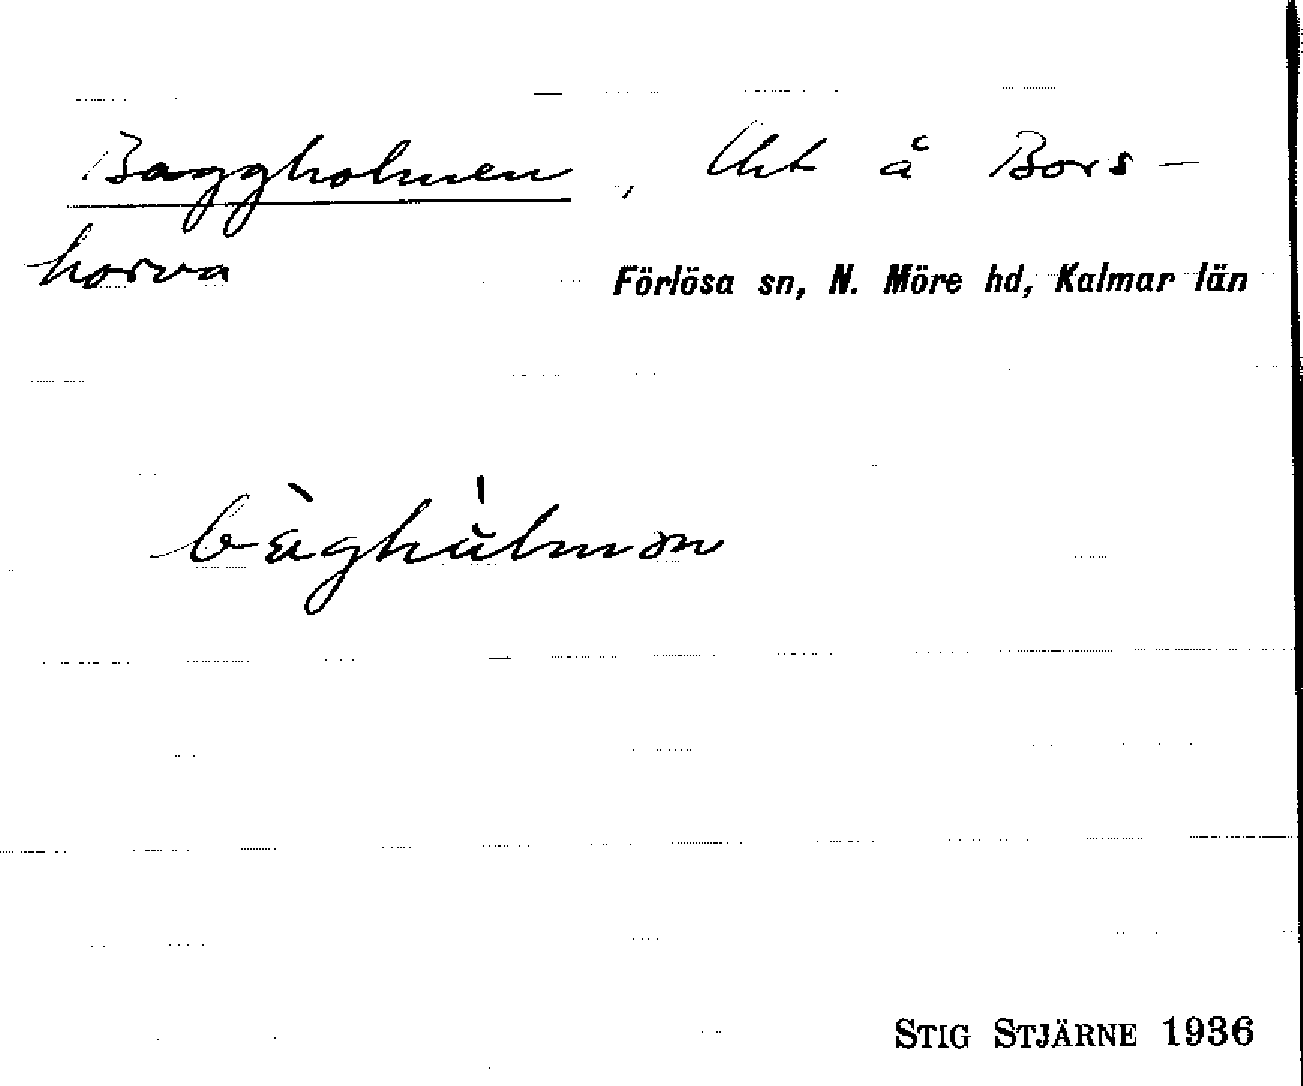 Baggholmen, Uet å Bors-
horva
Förlösa sn, N. Möre hd, Kalmar län
STIG STJÄRNE 1936